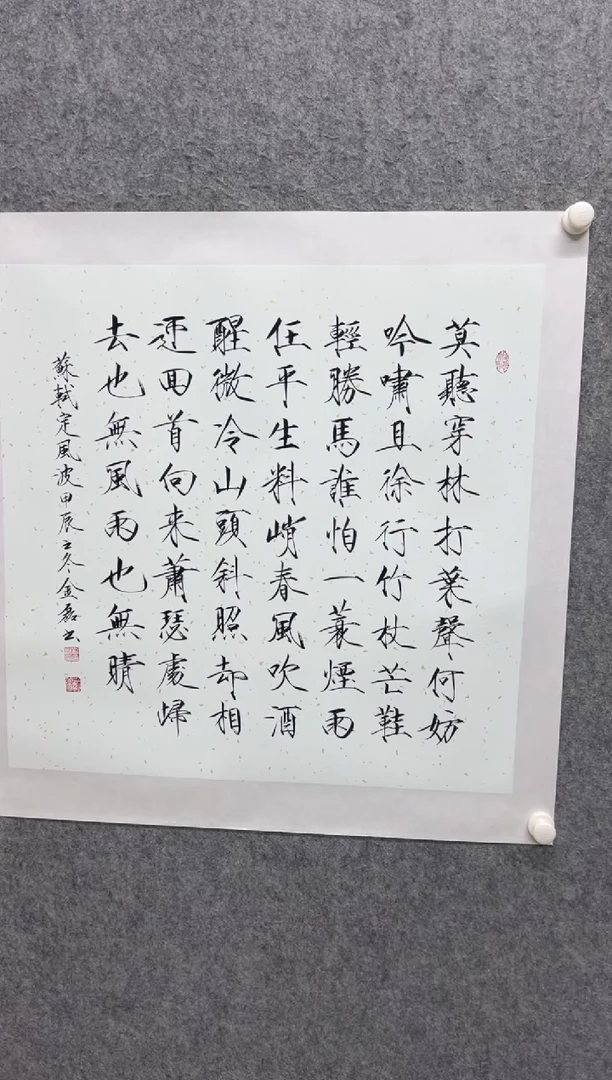 莫聽穿林打葉聲何妨
吟嘯且徐行竹杖芒鞋
輕勝馬誰怕一蓑煙雨
任平生料峭春風吹酒
醒微冷山頭斜照却相
迎回首向来蕭瑟處歸
去也無風雨也無晴
蘇軾定風波甲辰之冬金磊书